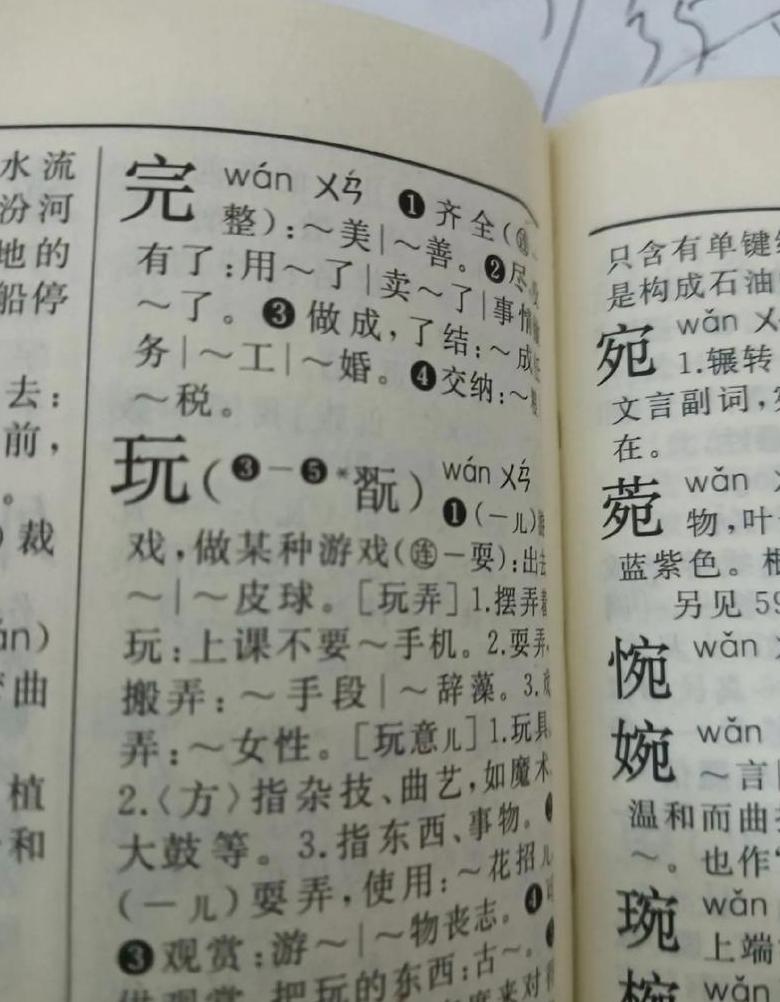 水流
汾河
地的
船停
去：
前，
。
）裁
án）
曲
植
和
完 wán ㄨㄢˊ ❶齐全（
整）：～美|～善。❷尽
有了：用～了|卖～了|事情
～了。❸做成，了结：～成
务|～工|～婚。❹交纳：～
～税。
玩（❸－❺*翫） wán ㄨㄢˊ
❶（－儿）
戏，做某种游戏（连－耍）：出去
～|～皮球。［玩弄］1.摆弄着
玩：上课不要～手机。2.耍弄，
搬弄：～手段|～辞藻。3.
弄：～女性。［玩意儿］1.玩具。
2.〈方〉指杂技、曲艺，如魔术、
大鼓等。3.指东西、事物。
（－儿）耍弄，使用：～花招儿
❸观赏：游～|～物丧志。❹
供观赏、把玩的东西：古～。
度来对待
只含有单键
是构成石油
宛 wǎn
1.辗转
文言副词，
在。
菀 wǎn
物，叶
蓝紫色。根
另见 59
惋 wǎn
婉 wǎn
～言
温和而曲
～。也作“
琬 wǎn
上端
椀 wǎn